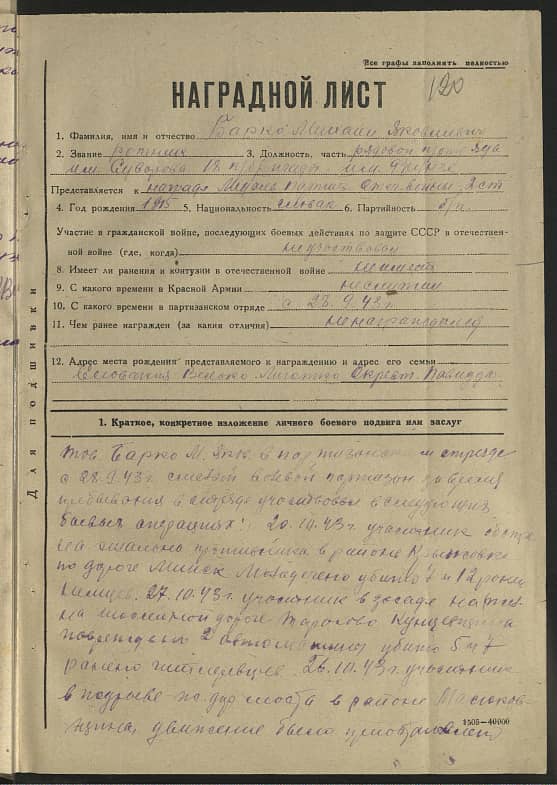 Все графы заполнять полностью
120
НАГРАДНОЙ ЛИСТ
1. Фамилия, имя и отчество Барко Михаил Яковлевич
2. Звание 3. Должность, часть рядовой п/отряда
им. Суворова 12 п/бригады им.
Представляется к награде Медаль Партиз. Отеч. войны 2 ст
4. Год рождения 1915 5. Национальность словак 6. Партийность б/п.
Участие в гражданской войне, последующих боевых действиях по защите СССР в отечествен-
ной войне (где, когда) неучаствовал
8. Имеет ли ранения и контузии в отечественной войне неимеет
9. С какого времени в Красной Армии неслужил
10. С какого времени в партизанском отряде с 28.9.43 г.
11. Чем ранее награжден (за какия отличия) ненагражден
12. Адрес места рождения представляемого к награждению и адрес его семьи
Словакия
Для подшивки
1. Краткое, конкретное изложение личного боевого подвига или заслуг
тов. Барко М. Як. в партизанском отряде
с 28.9.43 г. смелый боевой партизан за время
пребывания в отряде участвовал в следующих
боевых операциях: 20.10.43 г. участник
противника в районе
по дороге Минск Молодечно убито и 12 ранен
немцев. 27.10.43 г. участник в засаде на
на шоссейной дороге
повреждены 2 автомашины убито 5 и 7
ранено гитлеровцев. 26.10.43 г. участник
в подрыве моста в районе Масюков-
щина, движение было приостановлено
1505—40000